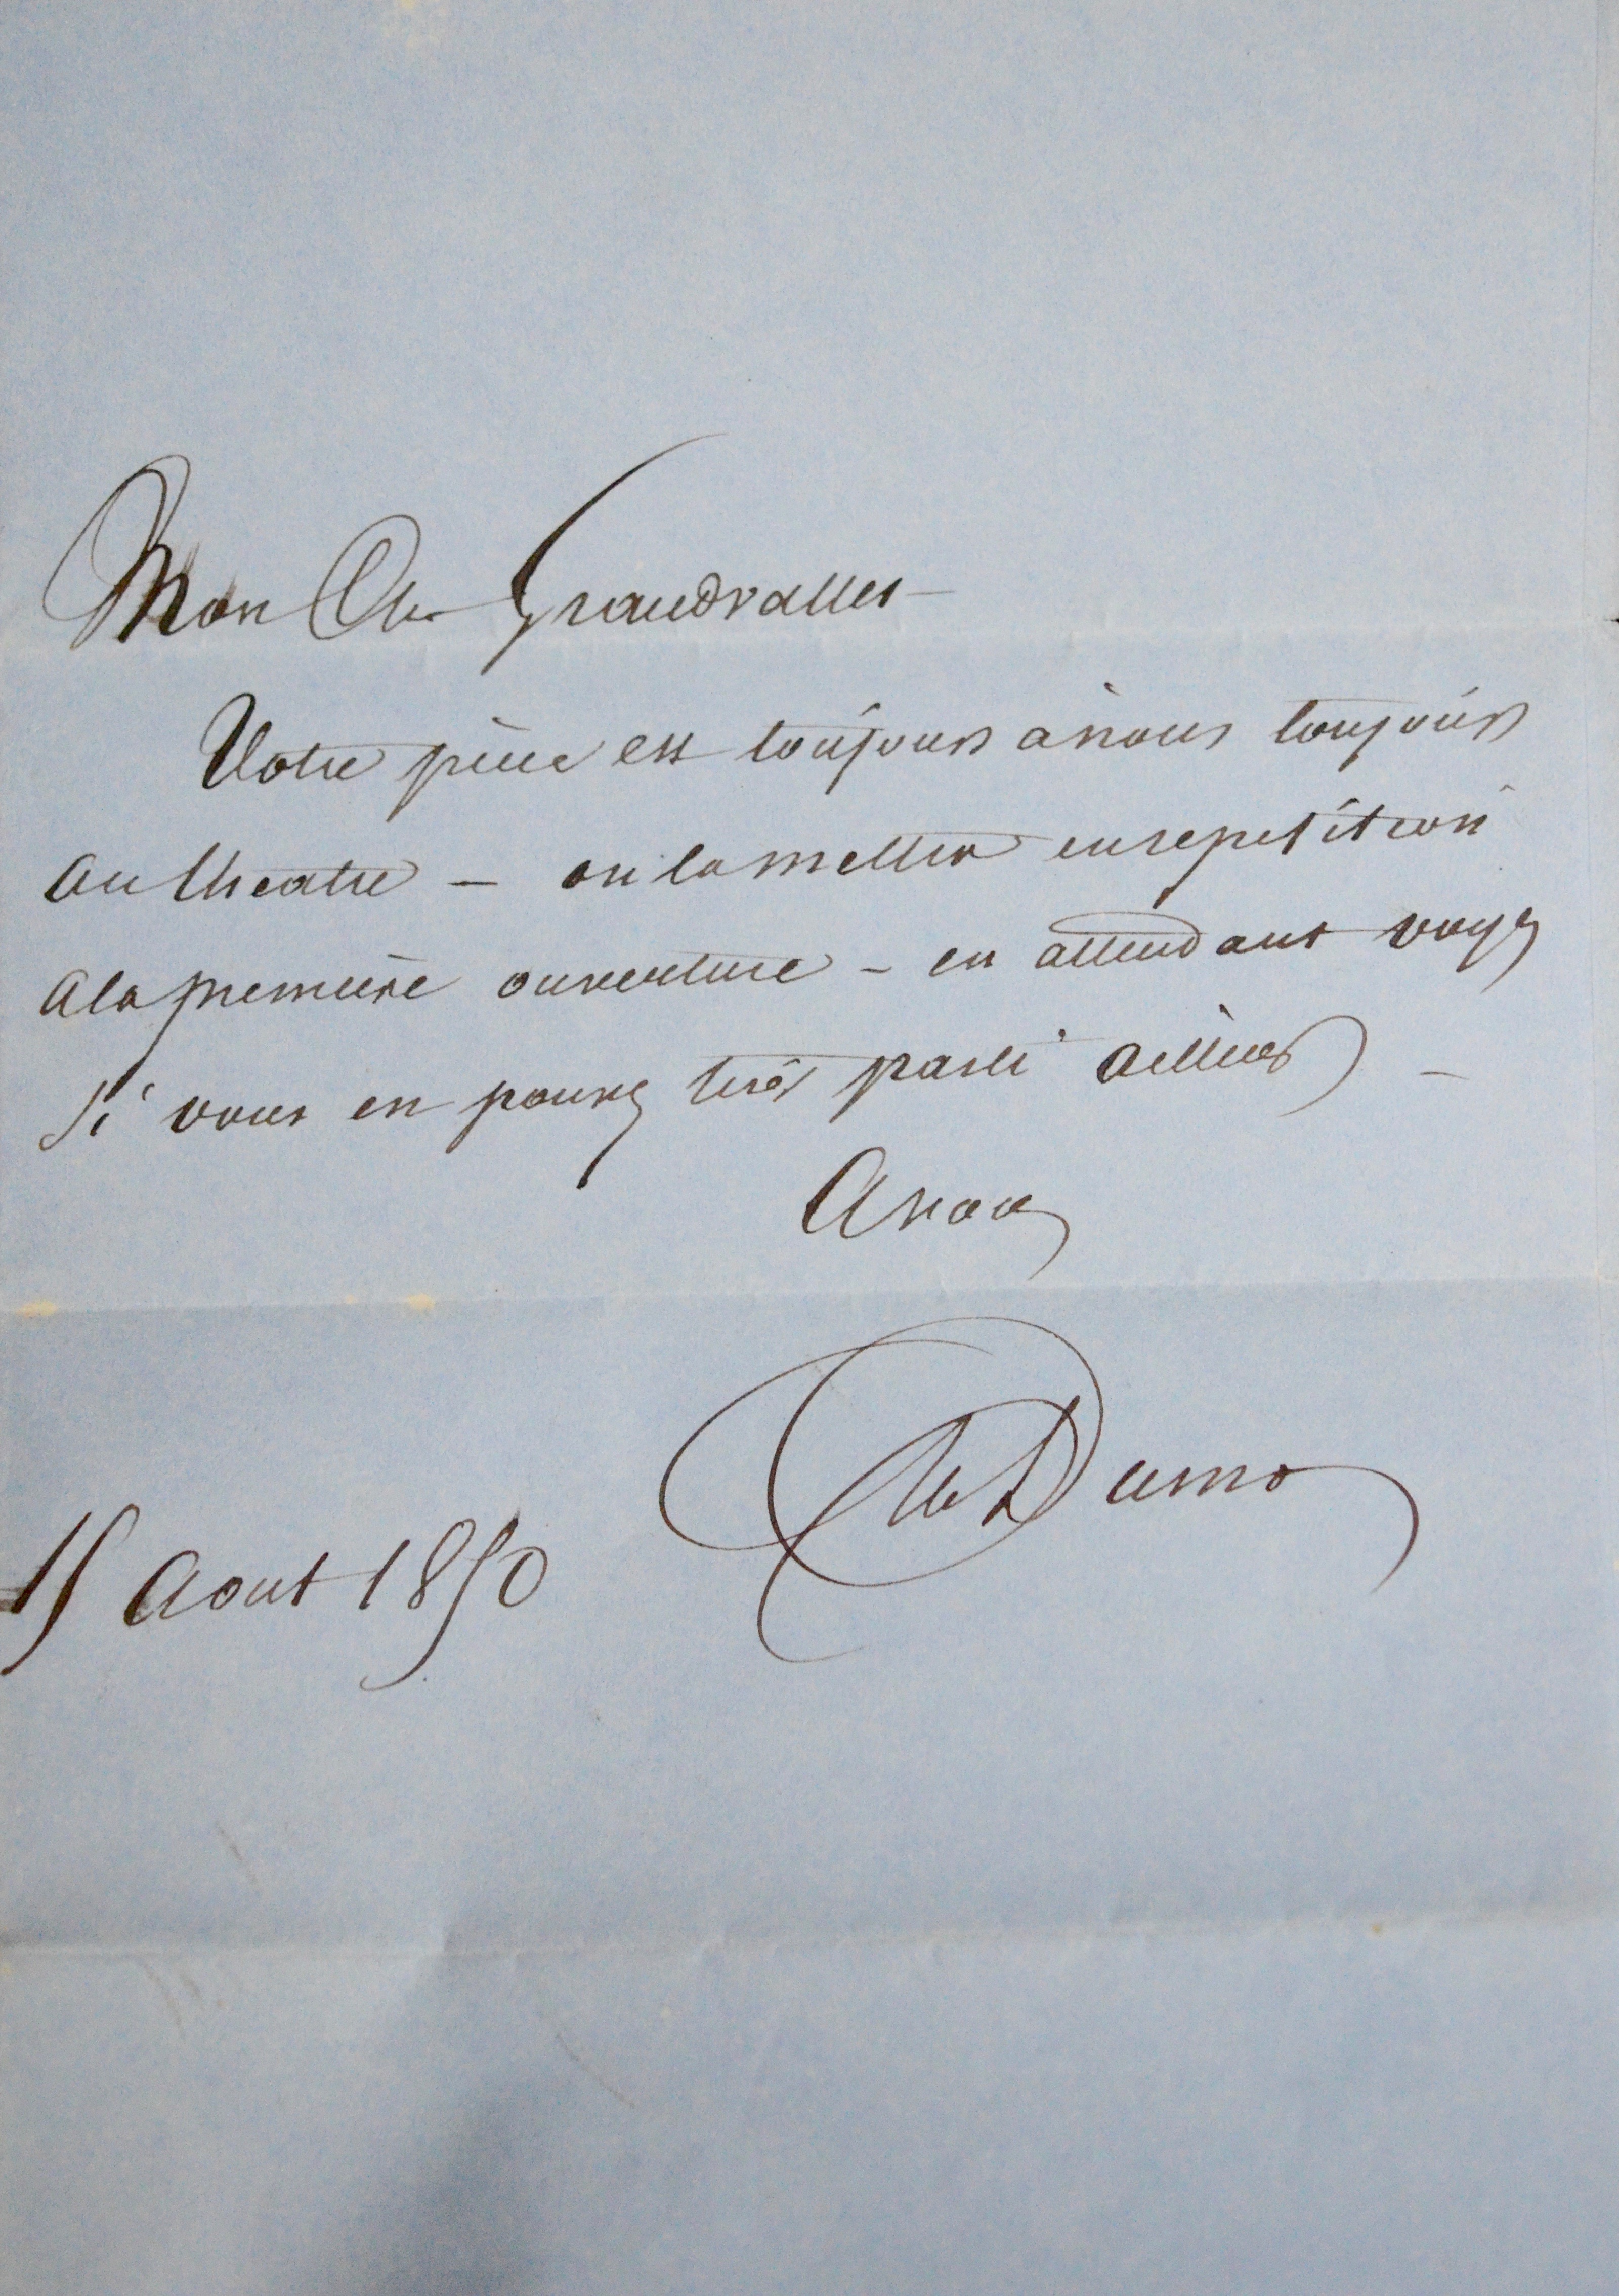 Mon Cher Grandvallet
Votre pièce est toujours à nous toujours
au theatre — on la mettra en repetition
a la premiere ouverture — en attendant voyez
si vous en pouvez tirer parti ailleurs —
A vous
Alex Dumas
15 Aout 1850